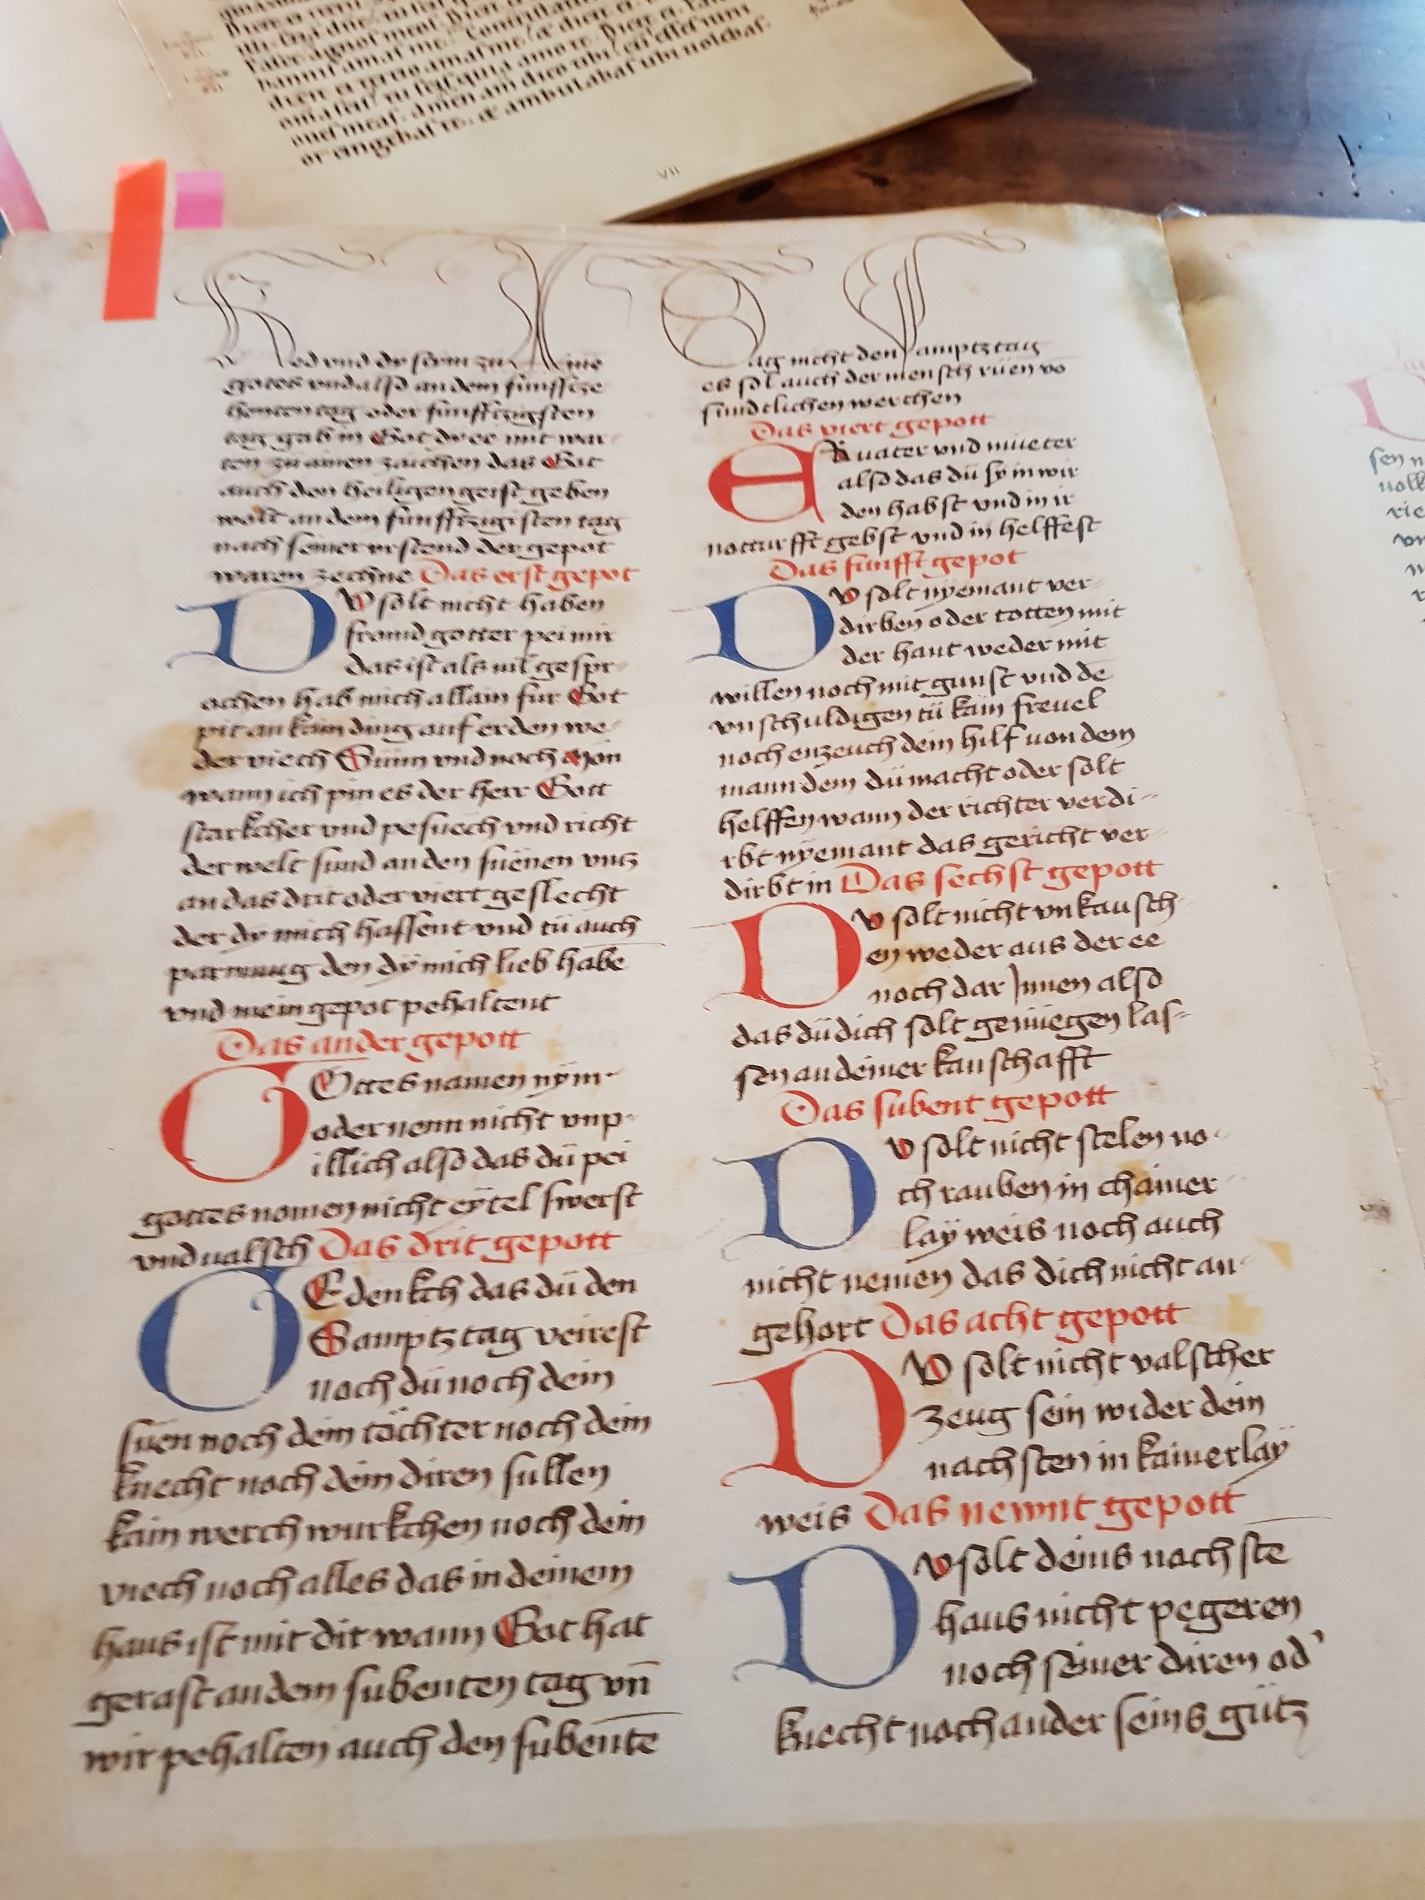 or cingebas te. & ambulabas ubi uolebas.
VII
red vnd dy steim zu
gotes vnd also an dem funfftze
henten tag oder funfftzigsten
tag gab in Got dy ee mit war
ten zu ainen zaichen das Got
auch den heiligen geist geben
wolt an dem funfftzigisten tag
nach seiner vrstend der gepot
waren zechne Das erst gepot
DV solt nicht haben
fromd gotter pei mir
das ist als vil gespr
ochen hab mich allain fur Got
pit an kain ding auf erden we
der viech Sunn vnd noch Mon
wann ich pin es der herr Gott
starkcher vnd pesuech vnd richt
der welt sund an den suenen vntz
an das drit oder viert geslecht
der dy mich hassent vnd tü auch
parmung den dÿ mich lieb habe
vnd mein gepot pehaltent
Das ander gepott
GOttes namen nym
oder nenn nicht vnp
illich also das dü pei
gottes nomen nicht eÿtel swerst
vnd valsch Das drit gepott
GEdenkch das dü den
Samptztag veirest
noch dü noch dein
suen noch dein töchter noch dein
knecht noch dein diren sullen
kain werch wurkchen noch dein
viech noch alles das in deinem
haus ist mit dir wann Got hat
gerast an dem subenten tag vn̄
wir pehalten auch den subente
Tag nicht den samptztag
es sol auch der mensch rüen vo
sundtlichen werchen
Das viert gepott
ERuater vnd müeter
also das dü sy in wir
den habst vnd in ir
notturfft gebst vnd in helffest
Das funfft gepot
DV solt nÿemant ver
dirben oder totten mit
der hant weder mit
willen noch mit gunst vnd de
vnschuldigen tü kain freuel
noch enzeuch dein hilf von dem
mann dem dü macht oder solt
helffen wann der richter verdi-
rbt nÿemant das gericht ver
dirbt in Das sechst gepott
DV solt nicht vnkausch
en weder aus der ee
noch dar Jnnen also
das dü dich solt genüegen las-
sen an deiner kanschafft
Das subent gepott
DV solt nicht stelen no
ch rauben in chainer
laÿ weis noch auch
nicht nemen das dich nicht an
gehort Das acht gepott
DV solt nicht valscher
zeug sein wider dein
nachsten in kainerlaÿ
weis Das newnt gepott
DV solt deins nachste
haus nicht pegeren
noch seiner diren od'
knecht noch ander seins gütz